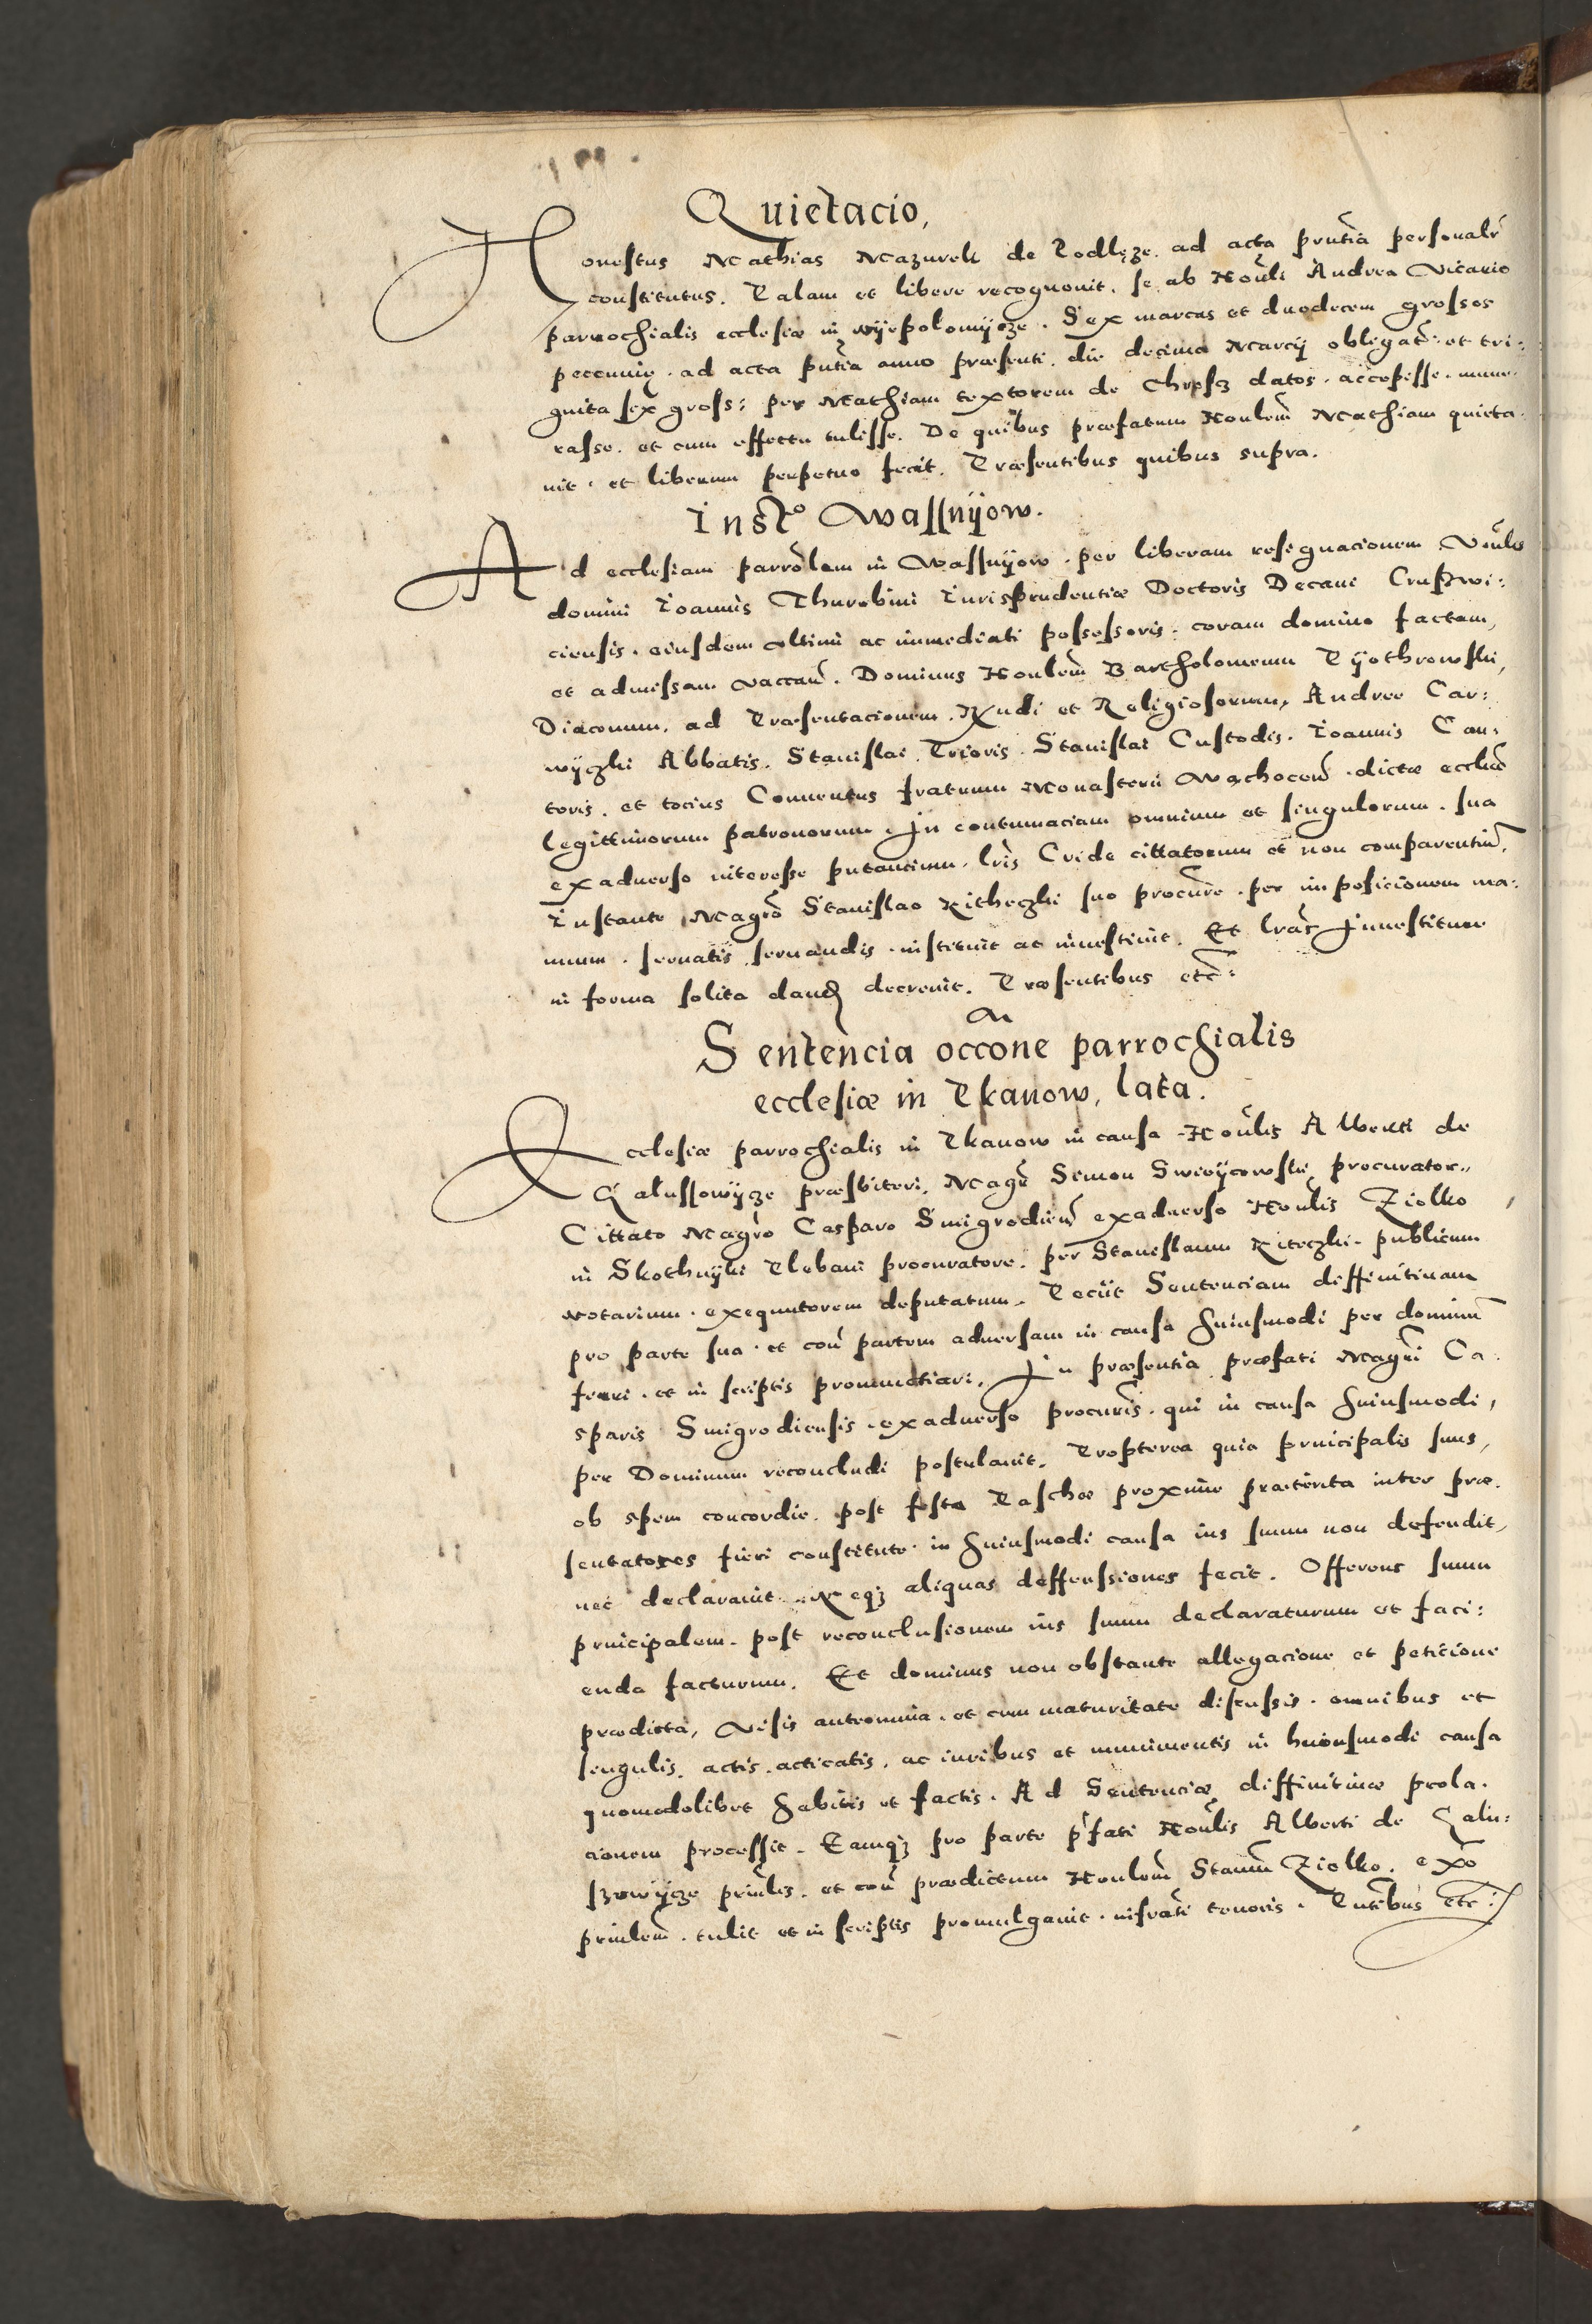 Quietacio,
Honestus Mathias Mazurek de Podlęze. ad acta pñtia personalr̃
constitutus. Palam et libere recognovit. se ab Hoñli Andrea Vicario
parrochialis ecclesiæ in Nyepolomycze. Sex marcas et duodecem grossos
peccunię. ad acta pñtia anno præsenti. die decima Marcij obligat̃. et tri:
ginta sex gross: per Mathiam textorem de datos. accepisse. nume
rasse. et cum effectu tulisse. De quibus præfatum Hoñlem Mathiam quieta
uit. et liberum perpetuo fecit. Præsentibus quibus supra.
Inst.º Wassnyow.
Ad ecclesiam parrõlem in Wassnyow. per liberam resignacionem Veñlis
domini Ioannis Thurobini Iurisprudentiæ Doctoris Decani Crusswi:
ciensis. eiusdem vltimi ac immediati possessoris. coram domino factam,
et admissam vaccan̄. Dominus Hoñlem Bartholomeum Pyothrowski,
Diaconum. ad Præsentacionem. Rndi et Religiosorum, Andree Car:
wyczki Abbatis. Stanislai. Prioris. Stanislai Custodis. Ioannis Can:
toris. et tocius Conuentus fratrum Monasterii Wąchocen̄. dictæ eccliæ
legittimorum patronorum. In contumaciam omnium et singulorum. sua
exaduerso interesse putantium. lr̃is Cride cittatorum et non comparentiũ.
Instante Magr̃o Stanislao Kitheczki suo procur̃e. per imposicionem ma:
nuum. seruatis seruandis. instituit ac inuestiuit. Et lr̃as Inuestiture
in forma solita dand̃ decreuit. Præsentibus etc̃:
Sentencia occõne parrochialis
ecclesiæ in Pkanow, lata.
Ecclesiæ parrochialis in Pkanow in causa Hoñlis Alberti de
Galussowycze præsbiteri. Magr̃ Simon Swieycowski procurator.
Cittato Magr̃o Casparo Smigrodien̄ exaduerso Hoñlis Ziolko
in Skothnyki Plebani procuratore. per Stanislaum Kiteczki. publicum
notarium. exequutorem deputatum. Peciit Sentenciam diffinitiuam
pro parte sua. et con̄ partem aduersam in causa huiusmodi per dominũ
ferri. et in scriptis pronunctiari. In præsentia præfati Magr̃i Ca
sparis Smigrodiensis. exaduerso procur̃is. qui in causa huiusmodi,
per Dominum reconcludi postulauit. Propterea quia principalis suus,
ob spem concordie. post festa Paschæ proxime præterita inter præ
sentatores fieri constitute. in huiusmodi causa ius suum non defendit,
nec declarauit. Neqȝ aliquas deffenssiones fecit. Offerens suum
principalem. post reconclusionem ius suum declaraturum et faci:
enda facturum. Et dominus non obstante allegacione et peticione
prædicta, visis anteomnia. et cum maturitate discussis. omnibus et
singulis. actis. acticatis. ac iuribus et munimentis in huiusmodi causa
quomodolibet habitis et factis. Ad Sentenciæ diffinitiuæ prola.
cionem processit. Eamqȝ pro parte p̃fati Hoñlis Alberti de Galu:
szowycze prin̄lis. et con̄ prædictum Hoñlem Stanm̃ Ziolko. exõ
prin̄lem. tulit et in scriptis promulgauit. infrãti tenoris. Pn̄tibus etc: